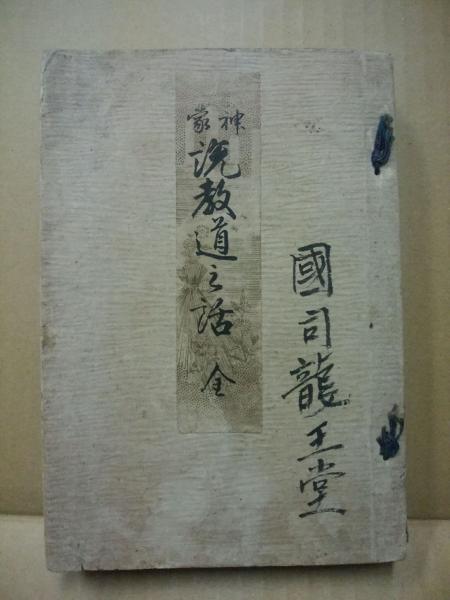 國司龍王堂
神蒙説教道之話 全